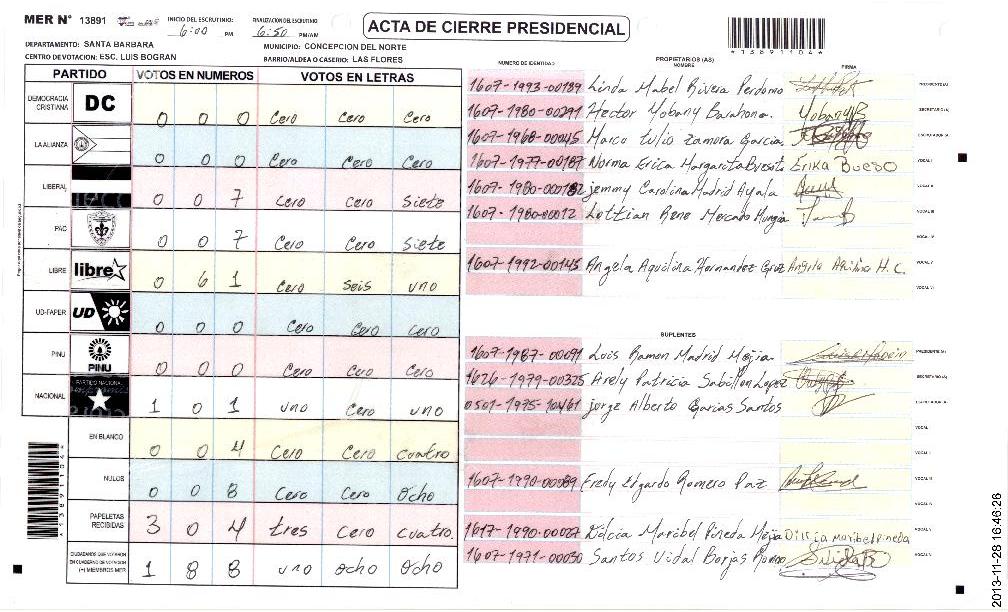 MER N° 13891
INICIO DEL ESCRUTINIO
6:00 PM
FINALIZACION DEL ESCRUTINIO
6:50 PM/AM
ACTA DE CIERRE PRESIDENCIAL
*13891104*
DEPARTAMENTO: SANTA BARBARA
MUNICIPIO: CONCEPCION DEL NORTE
CENTRO DE VOTACION: ESC. LUIS BOGRAN
BARRIO/ALDEA O CASERIO: LAS FLORES
PARTIDO VOTOS EN NUMEROS VOTOS EN LETRAS
DEMOCRACIA CRISTIANA DC 0 0 0 Cero Cero Cero
LA ALIANZA 0 0 0 Cero Cero Cero
LIBERAL 0 0 7 Cero Cero Siete
PAC 0 0 7 Cero Cero Siete
LIBRE libre 0 6 1 Cero Seis uno
UD-FAPER UD 0 0 0 Cero Cero Cero
PINU PINU 0 0 0 Cero Cero Cero
NACIONAL PARTIDO NACIONAL 1 0 1 uno Cero uno
EN BLANCO 0 0 4 Cero Cero cuatro
NULOS 0 0 8 Cero Cero Ocho
PAPELETAS RECIBIDAS 3 0 4 tres Cero cuatro.
CIUDADANOS QUE VOTARON EN CUADERNO DE VOTACION (+) MIEMBROS MER 1 8 8 uno Ocho Ocho
*13891104*
NUMERO DE IDENTIDAD PROPIETARIOS (AS) NOMBRE FIRMA
1607-1993-00189 Linda Mabel Rivera Perdomo PRESIDENTE (A)
1607-1980-00291 Hector Yobany Barahona. Yobany B SECRETARIO (A)
1607-1968-00045 Marco tulio Zamora Garcia ESCRUTADOR (A)
1607-1977-00187 Norma Erica Margarita Erika Bueso VOCAL I
1607-1980-00182 jemmy Carolina Madrid Ayala VOCAL II
1607-1980-0012 Rene Mercado Mungia VOCAL III
VOCAL IV
1607-1992-00145 Angela Aquilina Hernandez Angela Aquilina H. C. VOCAL V
VOCAL VI
SUPLENTES
1607-1987-00091 Luis Ramon Madrid Mejia PRESIDENTE (A)
1626-1979-00325 Arely Patricia Sabillon Lopez SECRETARIO (A)
0501-1975-10461 jorge Alberto Garias Santos ESCRUTADOR (A)
VOCAL
VOCAL II
1607-1990-00089 Fredy Edgardo Romero Paz VOCAL III
VOCAL IV
1617-1990-00027 Dilcia Maribel Pineda Mejia Dilcia maribel Pineda VOCAL V
1607-1971-00030 Santos Vidal Borjas VOCAL VI
2013-11-28 16:46:26